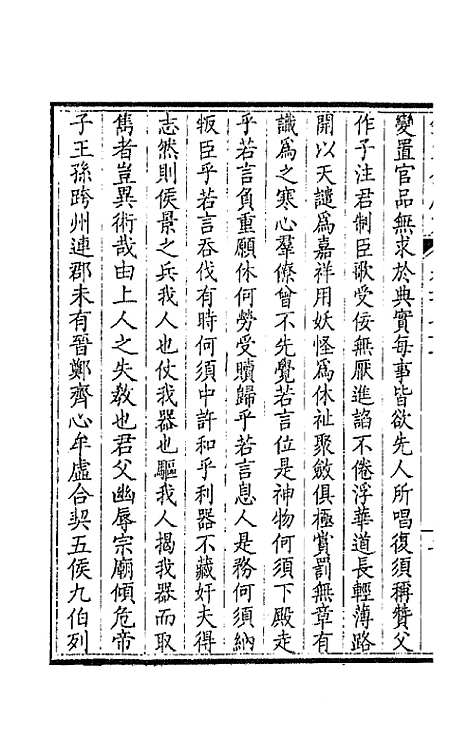 變置官品無求於典實每事皆欲先人所唱復須稱贊父
作子注君制臣歌受佞無厭進諂不倦浮華道長輕薄路
開以天譴為嘉祥用妖怪為休祉聚斂俱極賞罰無章有
識為之寒心羣僚曾不先覺若言位是神物何須下殿走
乎若言負重願休何勞受贖歸乎若言息人是務何須納
叛臣乎若言吞伐有時何須中許和乎利器不藏奸夫得
志然則侯景之兵我人也仗我器也驅我人揭我器而取
雋者豈異術哉由上人之失教也君父幽辱宗廟傾危帝
子王孫跨州連郡未有晉鄭齊心牟虛合契五侯九伯列